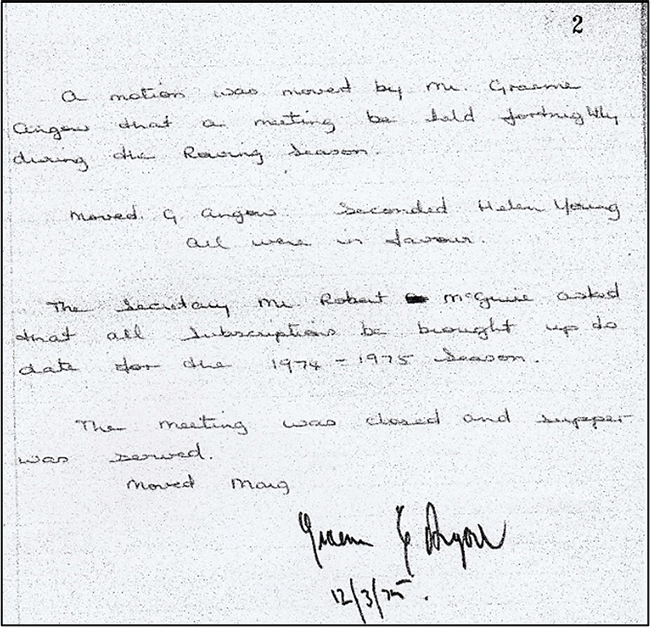 2
A motion was moved by Mr. Graeme
Angow that a meeting be held fortnightly
during the Rowing Season.
Moved. G Angow. Seconded Helen Young
All were in favour.
The Secretary Mr Robert McGuire asked
that all subscriptions be brought up to
date for the 1974 - 1975 Season.
The meeting was closed and supper
was served.
Moved Marg
Graeme G Angow
12/3/75.